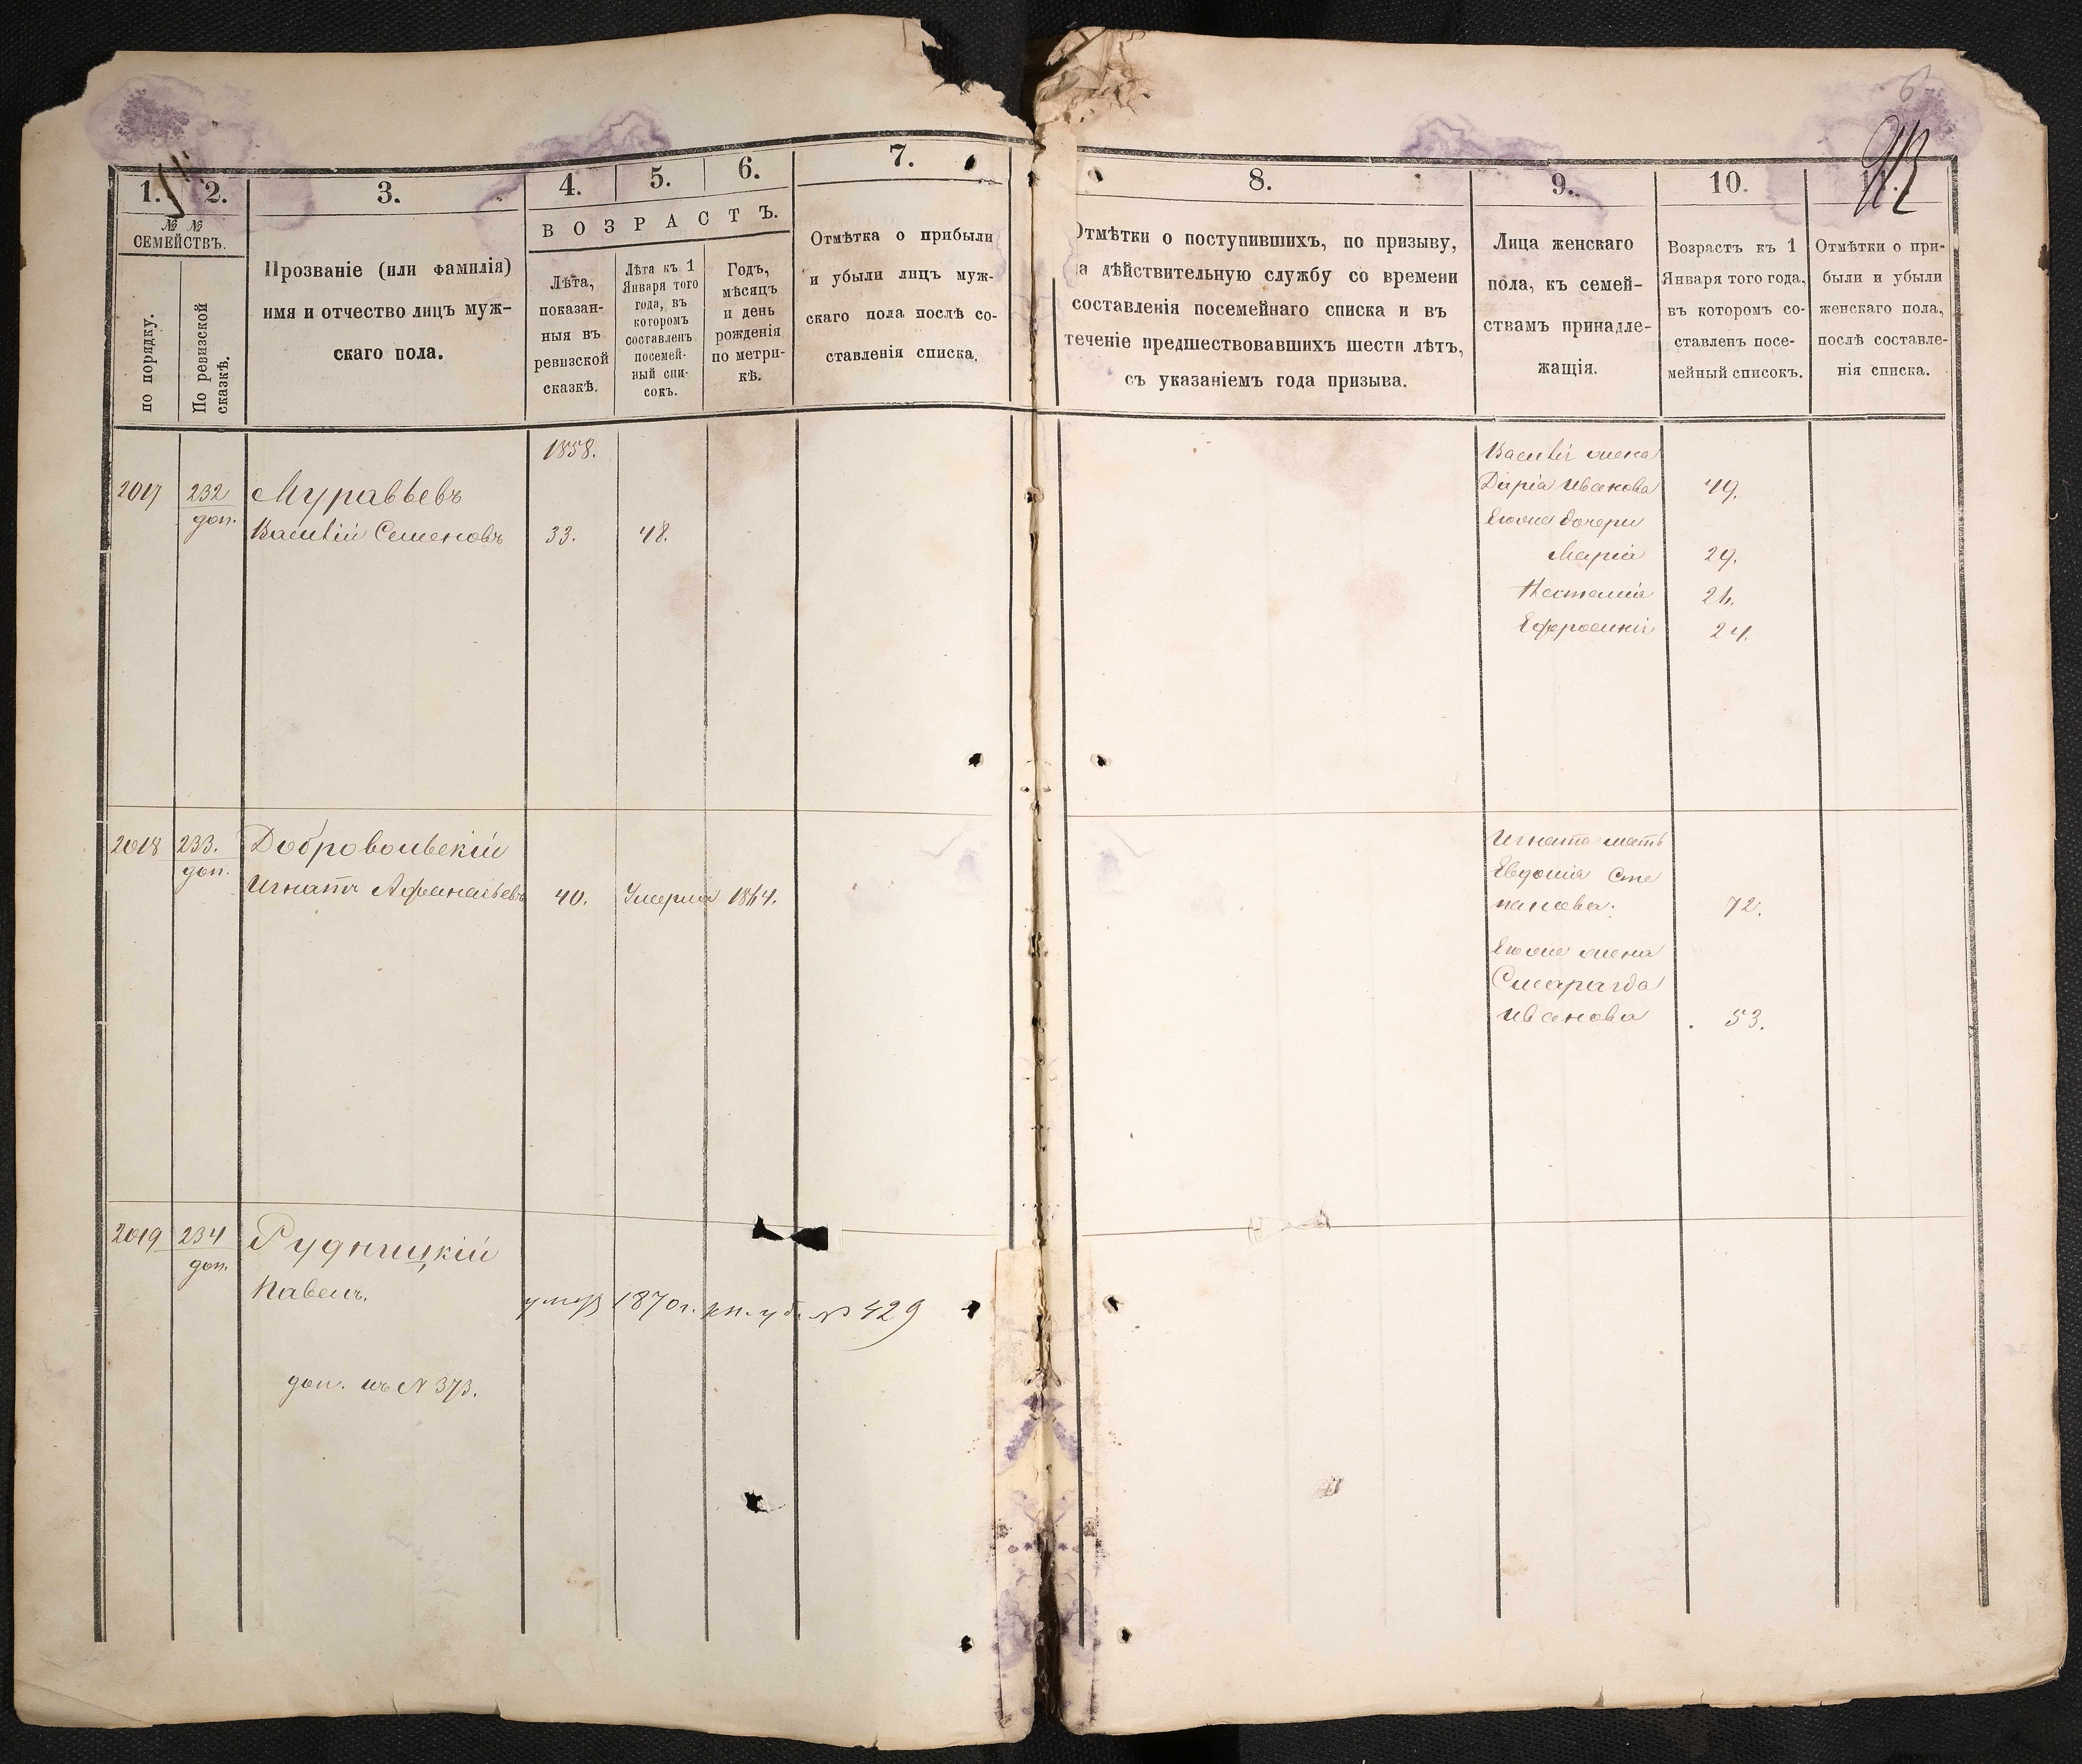 6
1. 2. 3. 4. 5. 6. 7.
№ № СЕМЕЙСТВЪ.
по порядку.
По ревизской сказкѣ.
Прозваніе (или фамилія)
имя и отчество лицъ муж-
скаго пола.
ВОЗРАСТЪ.
Лѣта,
показан-
ныя въ
ревизской
сказкѣ.
Лѣта къ 1
Января того
года, въ
которомъ
составленъ
посемей-
ный спи-
сокъ.
Годъ,
мѣсяцъ
и день
рожденія
по метри-
кѣ.
Отмѣтка о прибыли
и убыли лицъ муж-
скаго пола послѣ со-
ставленія списка.
8. 9. 10. 11.
Отмѣтки о поступившихъ, по призыву,
на дѣйствительную службу со времени
составленія посемейнаго списка и въ
теченіе предшествовавшихъ шести лѣтъ,
съ указаніемъ года призыва.
Лица женскаго
пола, къ семей-
ствамъ принадле-
жащія.
Возрастъ къ 1
Января того года,
въ которомъ со-
ставленъ посе-
мейный списокъ.
Отмѣтки о при-
были и убыли
женскаго пола,
послѣ составле-
нія списка.
1858.
2017 232 Муравьевъ
доп. Василій Семеновъ 33. 48.
Василія жена
Дарія Иванова 49.
Ихже дочери
Марія 29.
24.
2018 233. Добровольскій
доп. Игнатъ Афанасьевъ 40. Умеръ 1864.
Игната мать
Евдокія Сте
панова. 72.
Егоже жена
Смарагда
Иванова 53.
2019 234 Рудницкій
доп. Павелъ. умеръ 1870 г. кн. уб. № 429
доп. къ № 373.